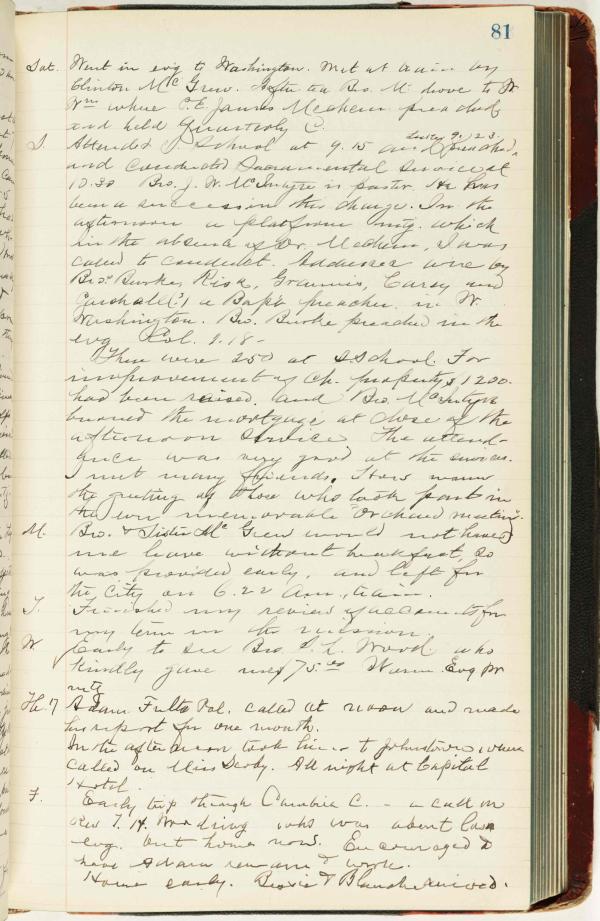 81
Sat. Went in evg to Washington. Met at train by
Clinton McGrew. After tea Bro. M. drove to W
Wm where P.E. James Mechem preached
and held Quarterly C.
S. Attended S. School at 9.15 and preached,
and conducted Sacramental service at
10.30 Bro. J. W. McIntyre is pastor. He has
been a success in this charge. In the
afternoon a platform mtg. which
in the absence of Dr. Mechem, I was
called to conduct. Addresses were by
Bros Burke, Risk, Grannis, Carey and
(?) a Bapt preacher in W.
Washington. Bro. Burke preached in the
evg. Col. 1.18-
There were 250 at S. School. For
improvement of Ch. property $1200.
had been raised. and Bro. McIntyre
burned the mortgage at close of the
afternoon service. The attend-
ance was very good at the services.
I met many friends. How warm
the greeting of those who took part in
the ever memorable "Orchard meeting".
M. Bro. & Sister McGrew would not have
me leave without breakfast, so
was provided early, and left for
the city on 6.22 A.m. train.
T. Finished my review of accounts for
my term in the mission.
W. Early to see Bro. T. L. Wood who
kindly gave me $75.00 Warm. Evg Pr
mtg
Th. 7 Adam Fults Col. called at noon and made
his report for one month.
In the afternoon took time to Johnstown where
called on Miss . All night at Capital
Hotel.
F. Early trip through Cambria C. - a call on
Rev T. H. Woodring who was absent last
evg. but home now. Encouraged to
have Adam remain & work.
Home early. Bessie & Blanche arrived.